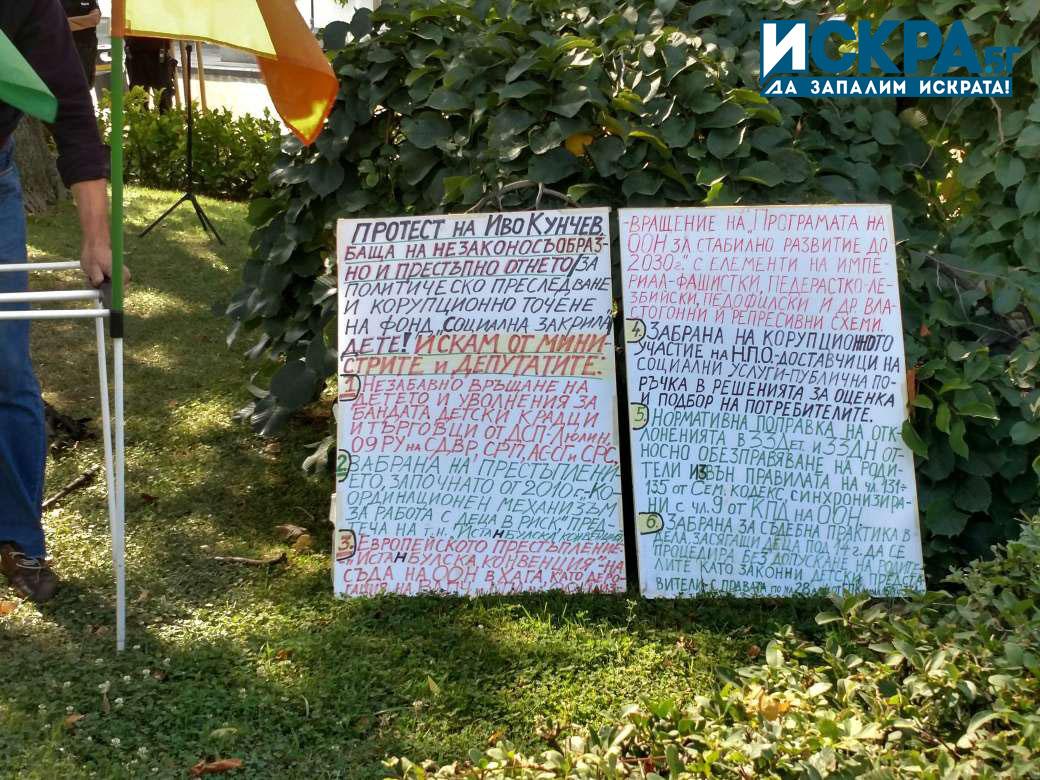 ИСКРА.БГ
ДА ЗАПАЛИМ ИСКРАТА!
ПРОТЕСТ НА ИВО КУНЧЕВ,
БАЩА НА НЕЗАКОНОСЪОБРАЗ-
НО И ПРЕСТЪПНО ОТНЕТО/ЗА
ПОЛИТИЧЕСКО ПРЕСЛЕДВАНЕ
И КОРУПЦИОННО ТОЧЕНЕ
НА ФОНД „СОЦИАЛНА ЗАКРИЛА"
ДЕТЕ! ИСКАМ ОТ МИНИ-
СТРИТЕ И ДЕПУТАТИТЕ:
1) НЕЗАБАВНО ВРЪЩАНЕ НА
ДЕТЕТО И УВОЛНЕНИЯ ЗА
БАНДАТА ДЕТСКИ КРАДЦИ
И ТЪРГОВЦИ ОТ ДСП-ЛЮЛИН,
09 РУ НА СДВР, СРП, АССГ И СРС.
2) ЗАБРАНА НА ПРЕСТЪПЛЕНИ-
ЕТО ЗАПОЧНАТО ОТ 2010 Г. „КО-
ОРДИНАЦИОНЕН МЕХАНИЗЪМ
ЗА РАБОТА С ДЕЦА В РИСК" ПРЕД-
ТЕЧА НА Т.Н. „ИСТАНБУЛСКА КОНВЕНЦИЯ"
3) ЕВРОПЕЙСКОТО ПРЕСТЪПЛЕНИЕ-
„ИСТАНБУЛСКА КОНВЕНЦИЯ"-НА
СЪДА НА ООН В ХАГА, КАТО
НА
-ВРАЩЕНИЕ НА „ПРОГРАМАТА НА
ООН ЗА СТАБИЛНО РАЗВИТИЕ ДО
2030 г." С ЕЛЕМЕНТИ НА ИМПЕ-
РИАЛ-ФАШИСТКИ, ПЕДЕРАСТКО-ЛЕ-
ЗБИЙСКИ, ПЕДОФИЛСКИ И ДР. ВЛА-
СТОГОННИ И РЕПРЕСИВНИ СХЕМИ.
4) ЗАБРАНА НА КОРУПЦИОННОТО
УЧАСТИЕ НА Н.П.О.-ДОСТАВЧИЦИ НА
СОЦИАЛНИ УСЛУГИ-ПУБЛИЧНА ПО-
РЪЧКА В РЕШЕНИЯТА ЗА ОЦЕНКА
И ПОДБОР НА ПОТРЕБИТЕЛИТЕ.
5) НОРМАТИВНА ПОПРАВКА НА ОТК-
ЛОНЕНИЯТА В ЗЗДЕТ. И ЗЗДН ОТ-
НОСНО ОБЕЗПРАВЯВАНЕ НА РОДИ-
ТЕЛИ ИЗВЪН ПРАВИЛАТА НА ЧЛ. 131÷
135 ОТ СЕМ. КОДЕКС, СИНХРОНИЗИРА-
НИ С ЧЛ. 9 ОТ КПД НА ООН.
6) ЗАБРАНА ЗА СЪДЕБНА ПРАКТИКА В
ДЕЛА, ЗАСЯГАЩИ ДЕЦА ПОД 14 Г. ДА СЕ
ПРОЦЕДИРА БЕЗ ДОПУСКАНЕ НА РОДИТЕ-
ЛИТЕ КАТО ЗАКОННИ ДЕТСКИ ПРЕДСТА-
ВИТЕЛИ С ПРАВАТА ПО ЧЛ. 28